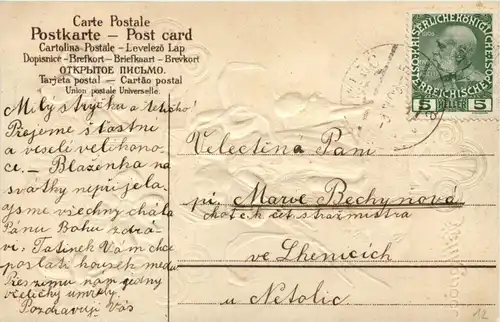 Carte Postale
Postkarte — Post card
Cartolina Postale – Levelező Lap
Dopisnice – Brefkort – Briefkaart – Brevkort
ОТКРЫТОЕ ПИСЬМО.
Tarjeta postal – Cartão postal
Union postale Universelle.
KAISERLICHE KÖNIGLICHE
ÖSTERREICHISCHE
5 HELLER 5
Milý strýčku a tetičko!
Přejeme šťastné
a veselé velikono-
ce. – Blaženka na
svátky nepřijela.
Jsme všechny chvála
Pánu Bohu zdrá-
vi. Tatínek Vám chce
poslati housek medu
Přes zimu nám jedny
včeličky umřely
Pozdravují Vás
Velectěná Paní
pí. Marie Bechyňová
choť c.k. čet. stražmistra
ve Lhenicích
u Netolic
12